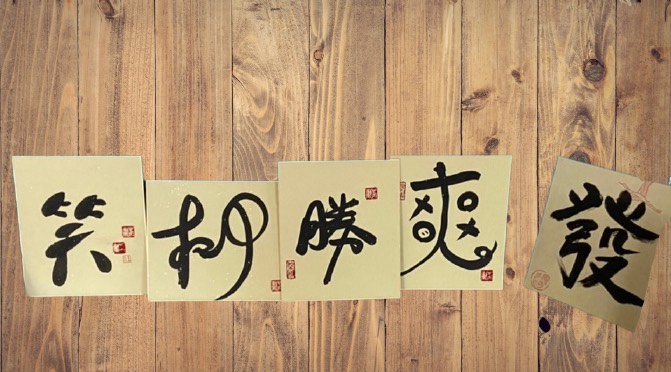 笑 勝 爽 發